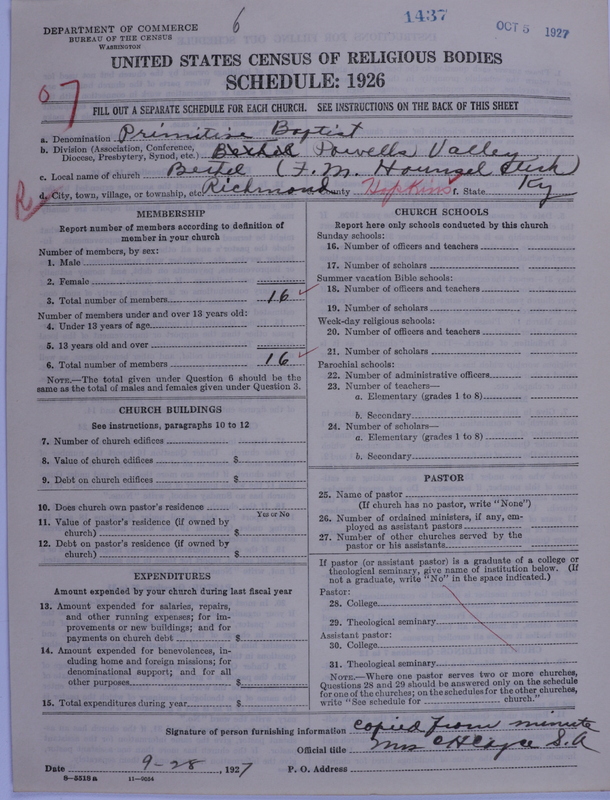 DEPARTMENT OF COMMERCE
BUREAU OF THE CENSUS
WASHINGTON
6
1437
OCT 5 1927
UNITED STATES CENSUS OF RELIGIOUS BODIES
SCHEDULE: 1926
07
FILL OUT A SEPARATE SCHEDULE FOR EACH CHURCH. SEE INSTRUCTIONS ON THE BACK OF THIS SHEET
a. Denomination Primitive Baptist
b. Division (Association, Conference, Diocese, Presbytery, Synod, etc.) Bethel Powells Valley
c. Local name of church Bethel (F. M.
d. City, town, village, or township, etc. Richmond County Hopkins f. State Ky
MEMBERSHIP
Report number of members according to definition of
member in your church
Number of members, by sex:
1. Male
2. Female
3. Total number of members 16
Number of members under and over 13 years old:
4. Under 13 years of age
5. 13 years old and over
6. Total number of members 16
NOTE.—The total given under Question 6 should be the
same as the total of males and females given under Question 3.
CHURCH BUILDINGS
See instructions, paragraphs 10 to 12
7. Number of church edifices
8. Value of church edifices $
9. Debt on church edifices $
10. Does church own pastor's residence
Yes or No
11. Value of pastor's residence (if owned by
church) $
12. Debt on pastor's residence (if owned by
church) $
EXPENDITURES
Amount expended by your church during last fiscal year
13. Amount expended for salaries, repairs,
and other running expenses; for im-
provements or new buildings; and for
payments on church debt $
14. Amount expended for benevolences, in-
cluding home and foreign missions; for
denominational support; and for all
other purposes $
15. Total expenditures during year $
CHURCH SCHOOLS
Report here only schools conducted by this church
Sunday schools:
16. Number of officers and teachers
17. Number of scholars
Summer vacation Bible schools:
18. Number of officers and teachers
19. Number of scholars
Week-day religious schools:
20. Number of officers and teachers
21. Number of scholars
Parochial schools:
22. Number of administrative officers
23. Number of teachers—
a. Elementary (grades 1 to 8)
b. Secondary
24. Number of scholars—
a. Elementary (grades 1 to 8)
b. Secondary
PASTOR
25. Name of pastor
(If church has no pastor, write "None")
26. Number of ordained ministers, if any, em-
ployed as assistant pastors
27. Number of other churches served by the
pastor or his assistants
If pastor (or assistant pastor) is a graduate of a college or
theological seminary, give name of institution below. (If
not a graduate, write "No" in the space indicated.)
Pastor:
28. College
29. Theological seminary
Assistant pastor:
30. College
31. Theological seminary
NOTE.—Where one pastor serves two or more churches,
Questions 28 and 29 should be answered only on the schedule
for one of the churches; on the schedules for the other churches,
write "See schedule for church."
Signature of person furnishing information copied from minute
Official title Mrs S.A
Date 9-28, 1927 P. O. Address
8-5518a 11-9054